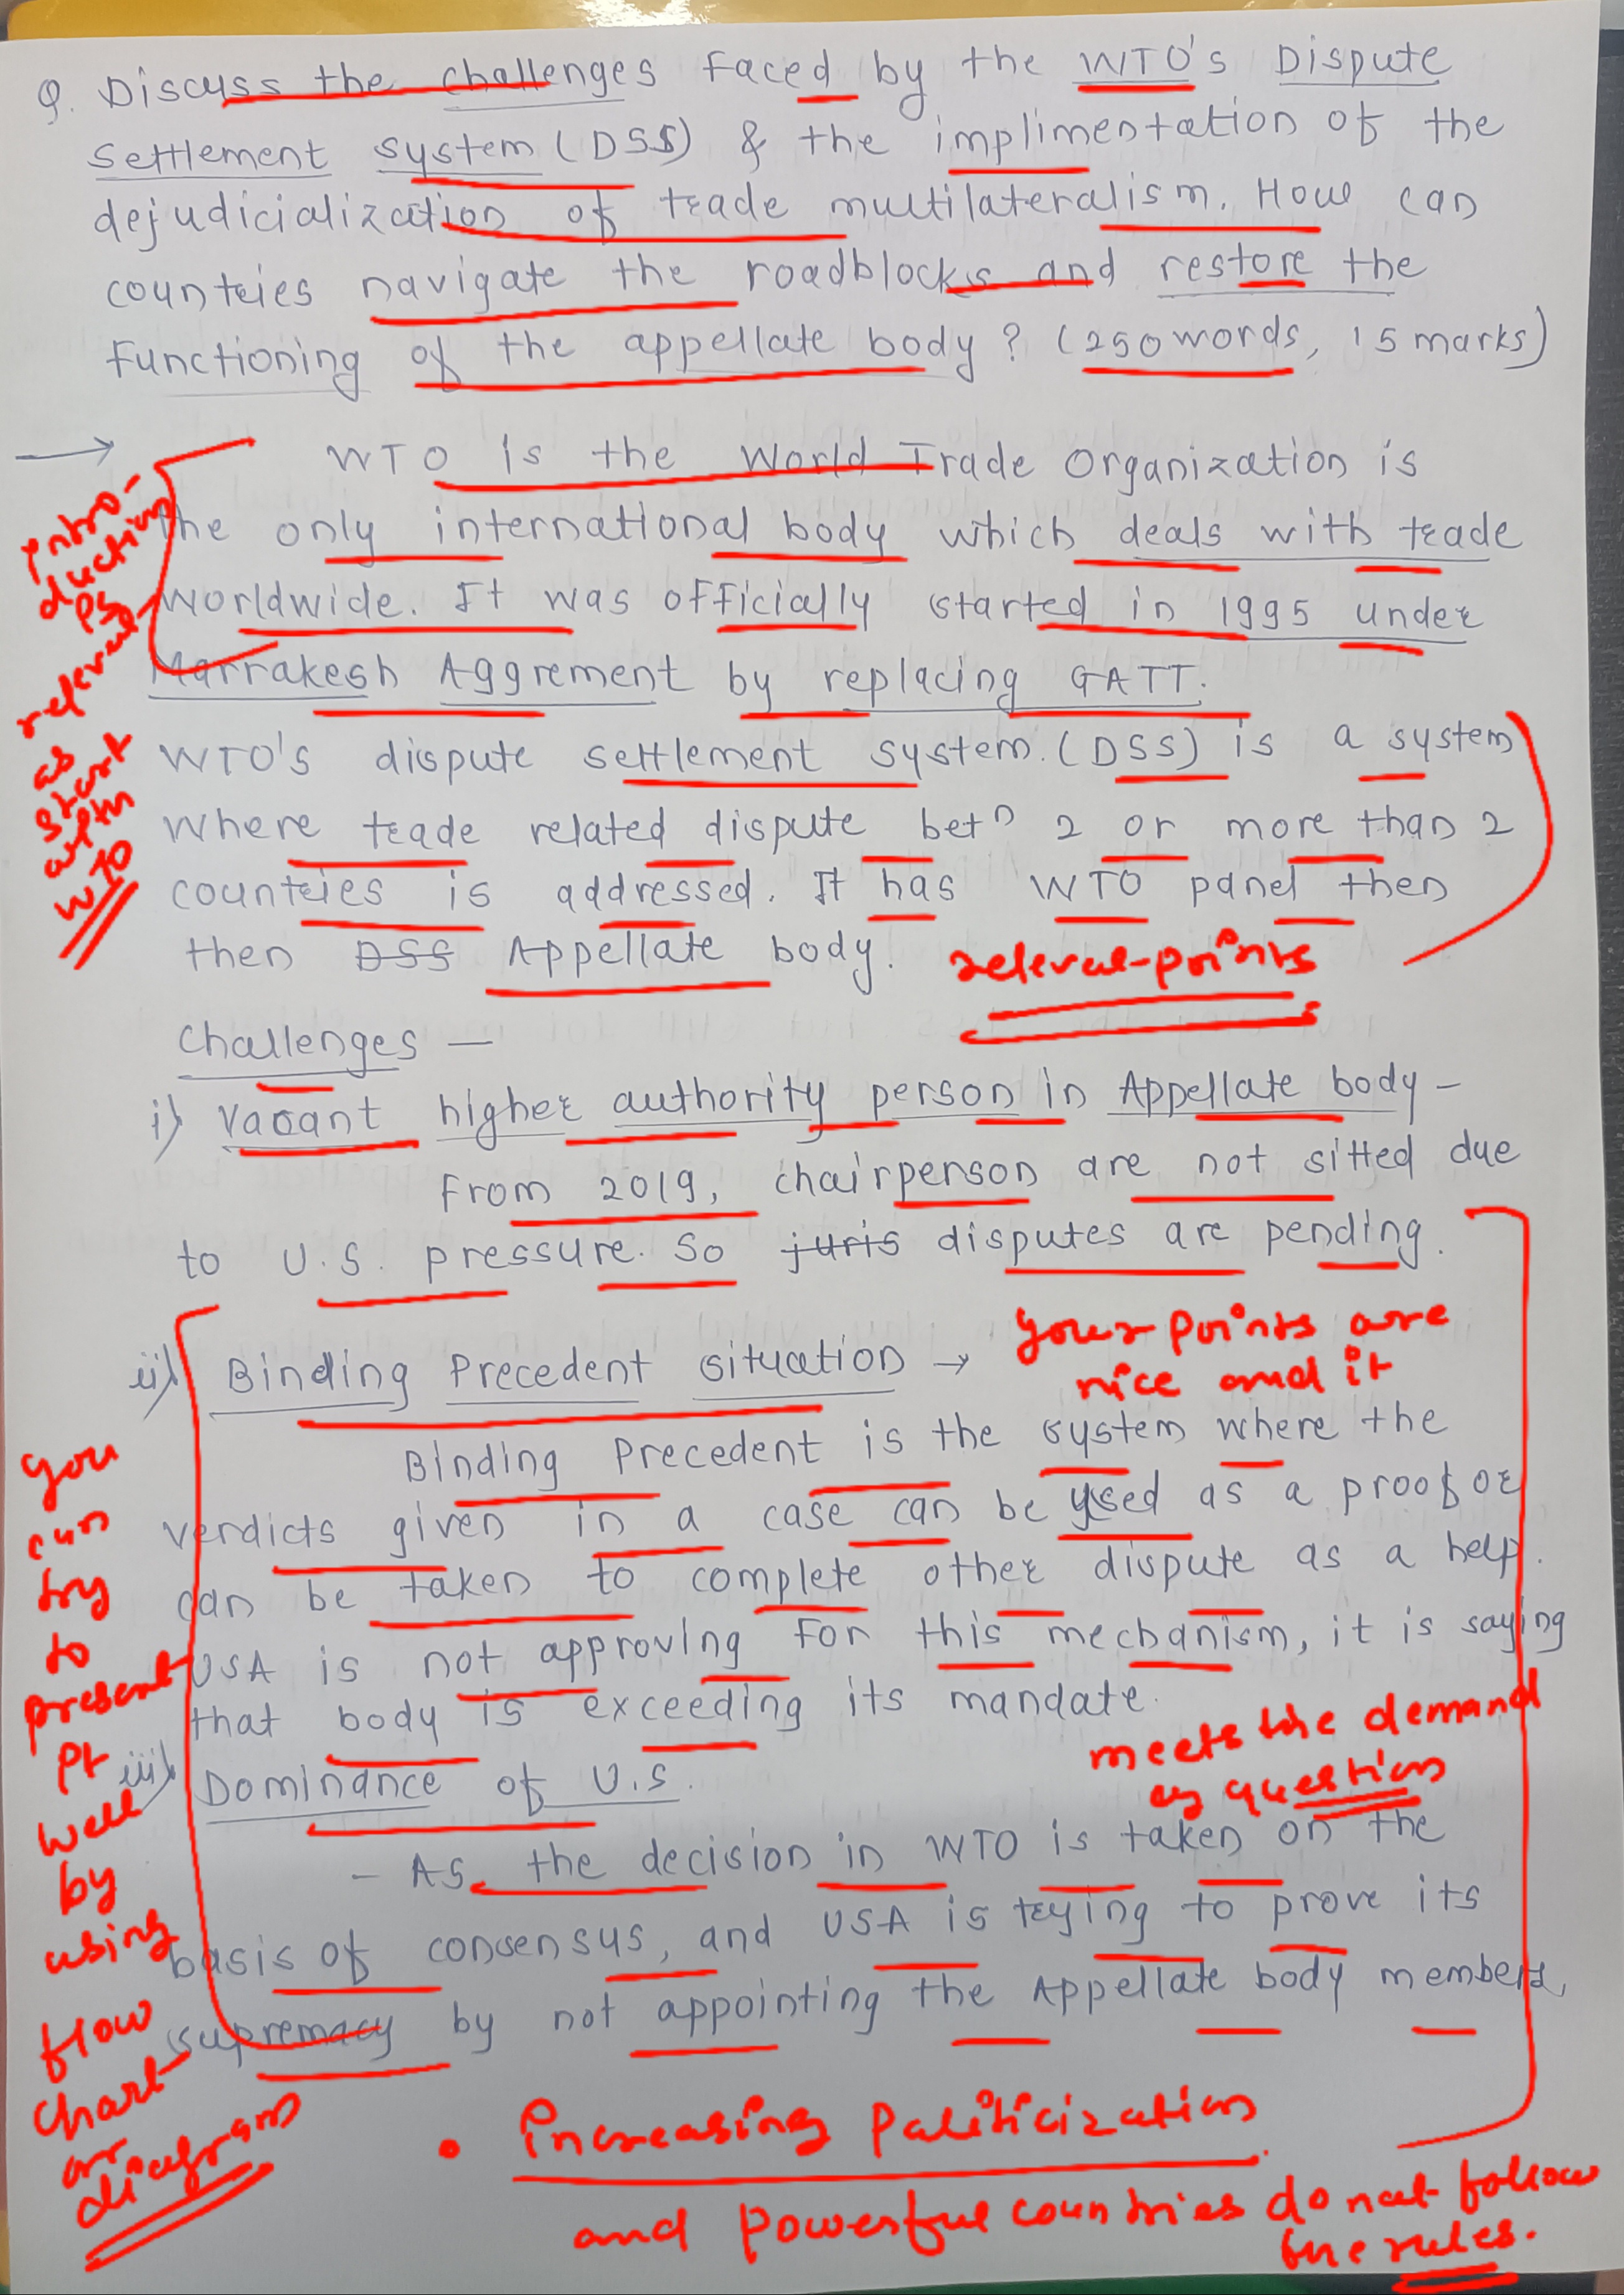 Q. Discuss the challenges faced by the WTO's Dispute
Settlement system (DSS) & the implimentation of the
dejudicialization of trade multilateralism. How can
countries navigate the roadblocks and restore the
functioning of the appellate body? (250 words, 15 marks)
→ WTO is the World Trade Organization is
the only international body which deals with trade
worldwide. It was officially started in 1995 under
Marrakesh Aggrement by replacing GATT.
intro-
duction
is
relevant
as
start
with
WTO
WTO's dispute settlement system (DSS) is a system
where trade related dispute betn 2 or more than 2
countries is addressed. It has WTO panel then
then DSS Appellate body.
releval-points
Challenges —
i) Vacant higher authority person in Appellate body -
From 2019, chairperson are not sitted due
to U.S. pressure. So juris disputes are pending.
ii) Binding Precedent situation →
your points are
nice and it
Binding Precedent is the system where the
verdicts given in a case can be used as a proof or
can be taken to complete other dispute as a help.
USA is not approving for this mechanism, it is saying
that body is exceeding its mandate.
meets the demand
of question
iii) Dominance of U.S.
- As the decision in WTO is taken on the
basis of consensus, and USA is trying to prove its
supremacy by not appointing the Appellate body members,
you
can
try
to
present
pt
well
by
using
flow
chart
or
diagram
• Increasing Politicization
and powerful countries do not follow
the rules.